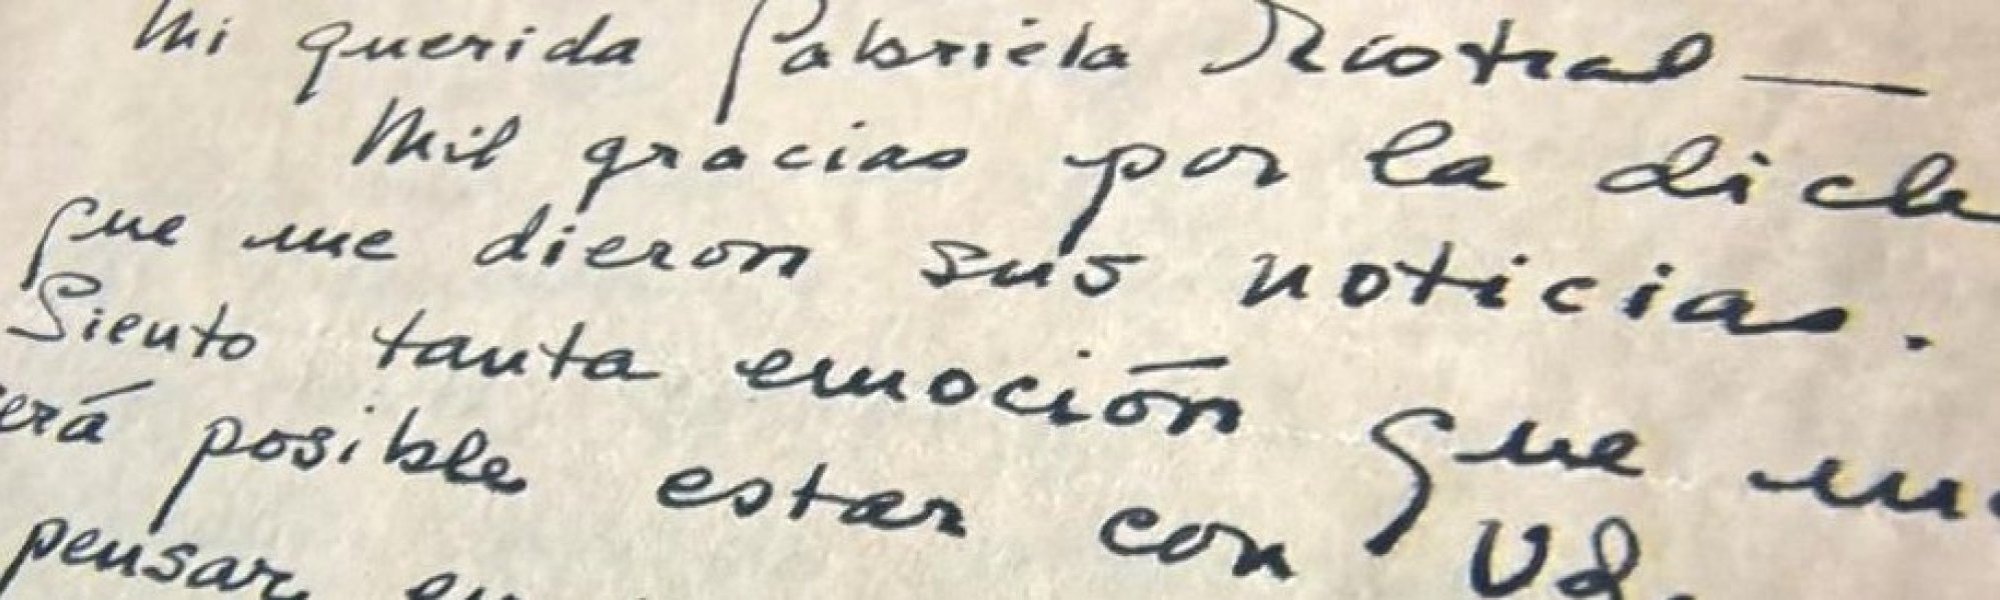 Mi querida Gabriela Mistral —
Mil gracias por la dich
que me dieron sus noticias.
Siento tanta emoción que m
erá posible estar con Ud.
pensar en